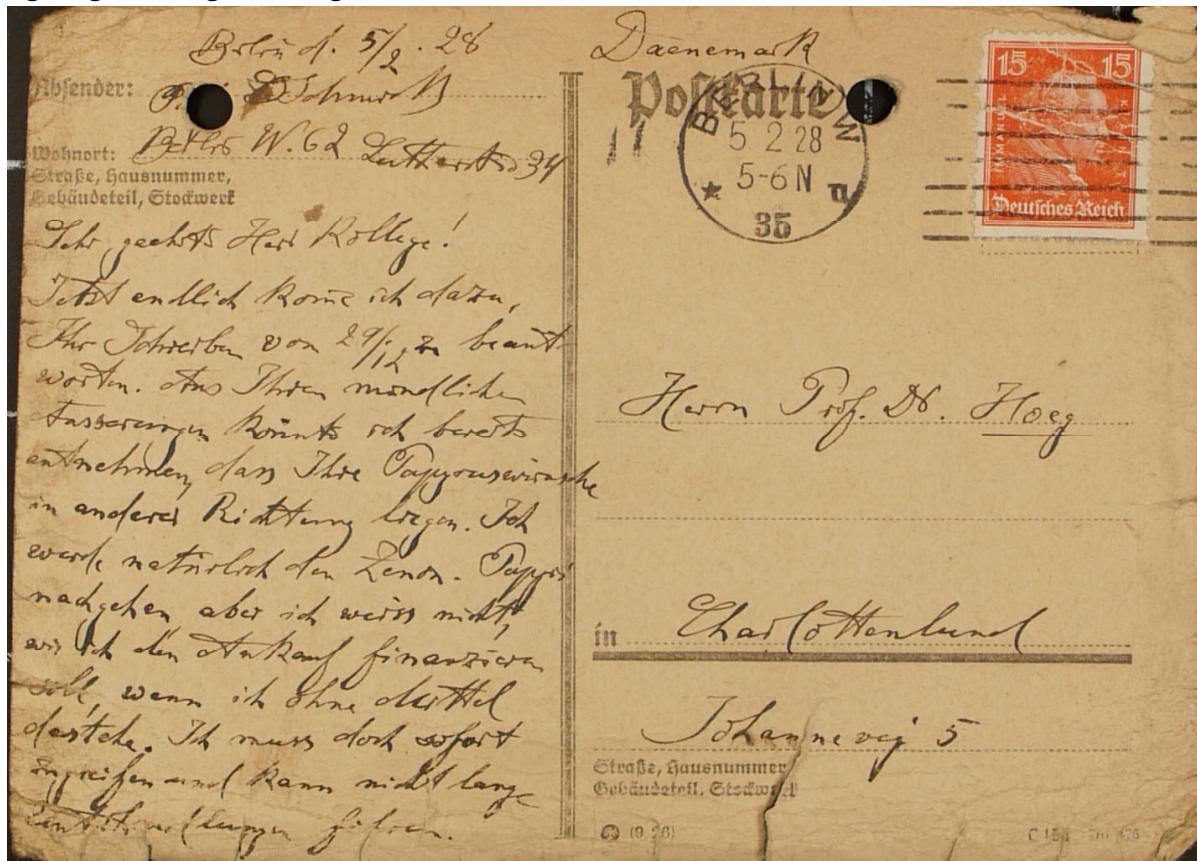 Berlin d. 5/2. 28
Absender:
C. Schmidt
Wohnort: Berlin W. 62 Lutherstr. 34
Straße, Hausnummer,
Gebäudeteil, Stockwerk
Sehr geehrter Herr Kollege!
Jetzt endlich kom̄e ich dazu,
Ihr Schreiben vom 29/12 zu beant-
worten. Aus Ihren mündlichen
Äusserungen konnte ich bereits
entnehmen, dass Ihre Papyruswünsche
in anderer Richtung liegen. Ich
werde natürlich den Zenon-Papyri
nachgehen, aber ich weiss nicht,
wie ich den Ankauf finanzieren
soll, wenn ich ohne Mittel
dastehe. Ich muss doch sofort
zugreifen und kann nicht lange
führen.
Daenemark
Postkarte
BERLIN W
5 2 28
5-6 N
35
15 15
IMMANUEL KANT
Deutsches Reich
Herrn Prof. Dr. Hoeg
in Charlottenlund
Johannevej 5
Straße, Hausnummer
Gebäudeteil, Stockwerk
(9 26)